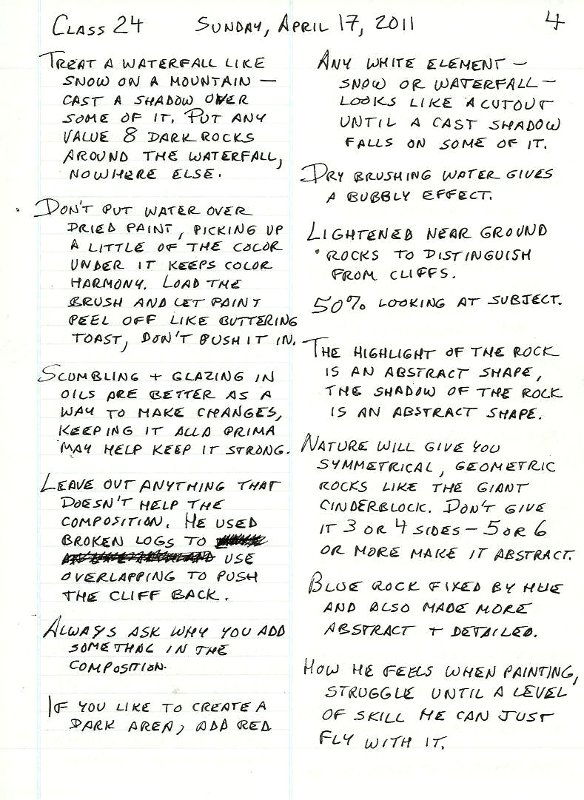 CLASS 24 SUNDAY, APRIL 17, 2011 4
TREAT A WATERFALL LIKE
SNOW ON A MOUNTAIN —
CAST A SHADOW OVER
SOME OF IT. PUT ANY
VALUE 8 DARK ROCKS
AROUND THE WATERFALL,
NOWHERE ELSE.
DON'T PUT WATER OVER
DRIED PAINT, PICKING UP
A LITTLE OF THE COLOR
UNDER IT KEEPS COLOR
HARMONY. LOAD THE
BRUSH AND LET PAINT
PEEL OFF LIKE BUTTERING
TOAST, DON'T PUSH IT IN.
SCUMBLING + GLAZING IN
OILS ARE BETTER AS A
WAY TO MAKE CHANGES,
KEEPING IT ALLA PRIMA
MAY HELP KEEP IT STRONG.
LEAVE OUT ANYTHING THAT
DOESN'T HELP THE
COMPOSITION. HE USED
BROKEN LOGS TO
USE
OVERLAPPING TO PUSH
THE CLIFF BACK.
ALWAYS ASK WHY YOU ADD
SOMETHNG IN THE
COMPOSITION.
IF YOU LIKE TO CREATE A
DARK AREA, ADD RED
ANY WHITE ELEMENT —
SNOW OR WATERFALL —
LOOKS LIKE A CUTOUT
UNTIL A CAST SHADOW
FALLS ON SOME OF IT.
DRY BRUSHING WATER GIVES
A BUBBLY EFFECT.
LIGHTENED NEAR GROUND
ROCKS TO DISTINGUISH
FROM CLIFFS.
50% LOOKING AT SUBJECT.
THE HIGHLIGHT OF THE ROCK
IS AN ABSTRACT SHAPE,
THE SHADOW OF THE ROCK
IS AN ABSTRACT SHAPE.
NATURE WILL GIVE YOU
SYMMETRICAL, GEOMETRIC
ROCKS LIKE THE GIANT
CINDERBLOCK. DON'T GIVE
IT 3 OR 4 SIDES — 5 OR 6
OR MORE MAKE IT ABSTRACT.
BLUE ROCK FIXED BY HUE
AND ALSO MADE MORE
ABSTRACT + DETAILED.
HOW HE FEELS WHEN PAINTING,
STRUGGLE UNTIL A LEVEL
OF SKILL HE CAN JUST
FLY WITH IT.